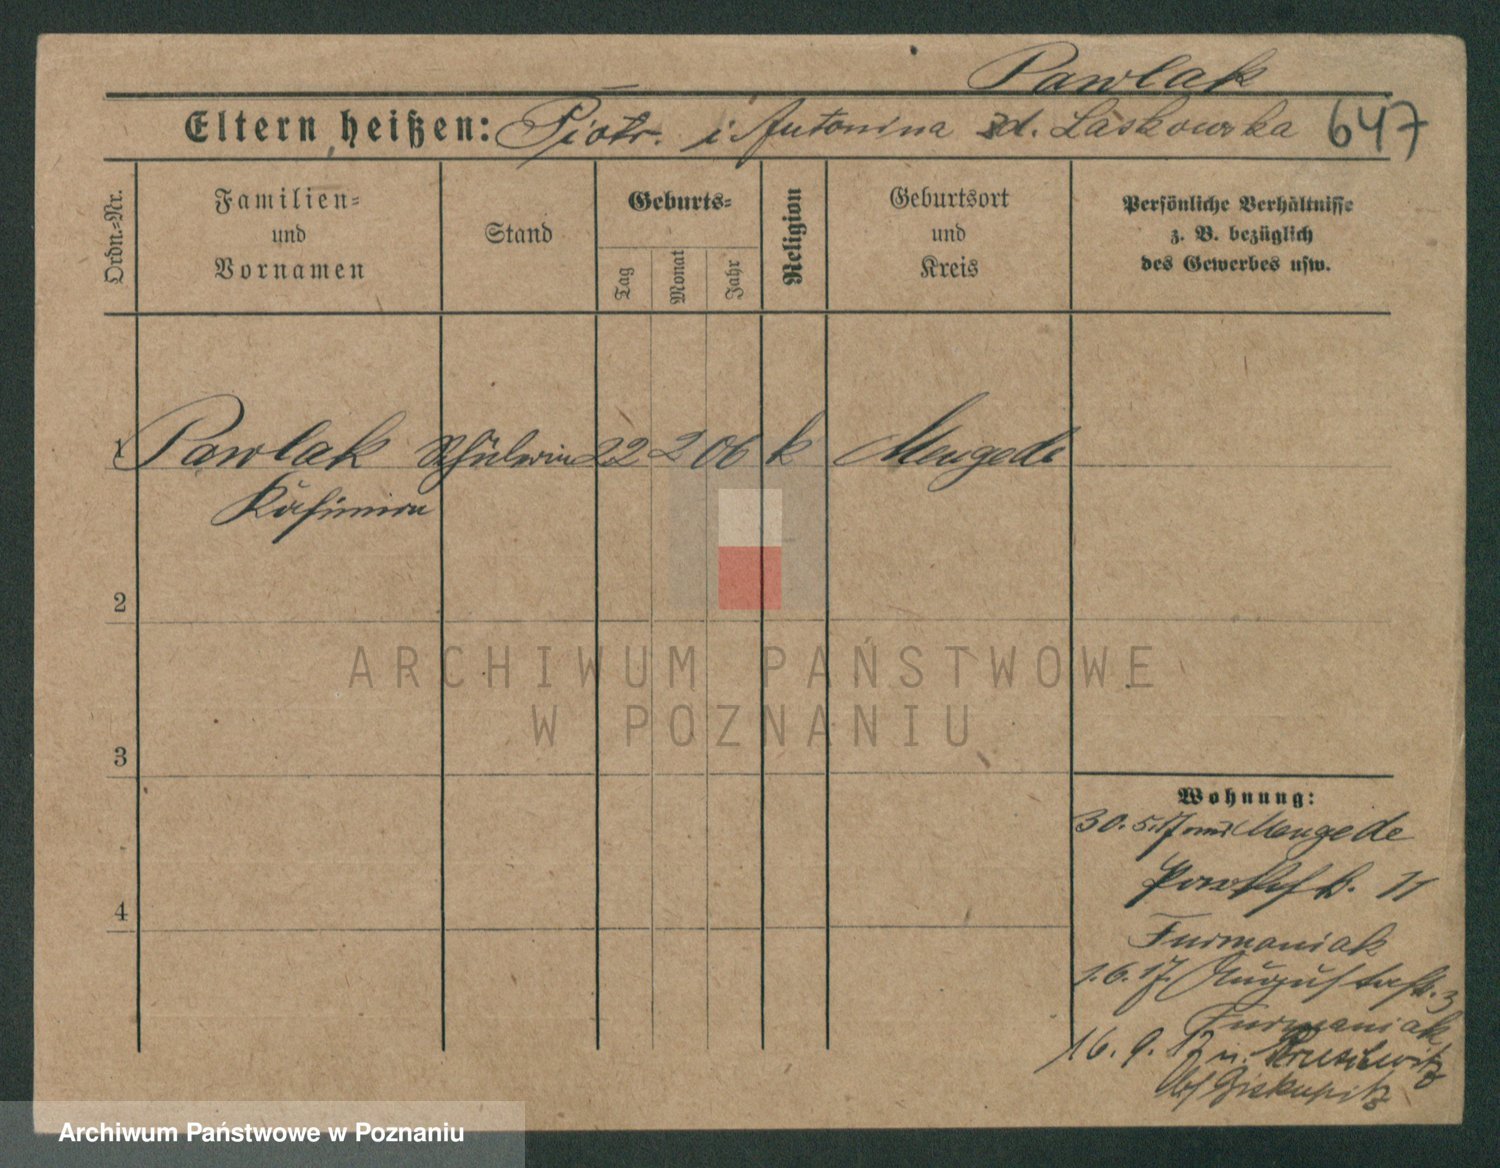 Pawlak
Eltern heißen: Piotr i Antonina zd. Laskowska 647
Ordn.-Nr.
Familien-
und
Vornamen
Stand
Geburts-
Tag
Monat
Jahr
Religion
Geburtsort
und
Kreis
Persönliche Verhältnisse
z. B. bezüglich
des Gewerbes usw.
1 Pawlak Schülerin 22 2 06 k Mengede
Kasimira
2
ARCHIWUM PAŃSTWOWE
W POZNANIU
3
Wohnung:
30.5.17 von Mengede
11
4
Furmaniak
1.6.17. Augustastr. 3
Furmaniak
16. 9. 17 n.
Archiwum Państwowe w Poznaniu